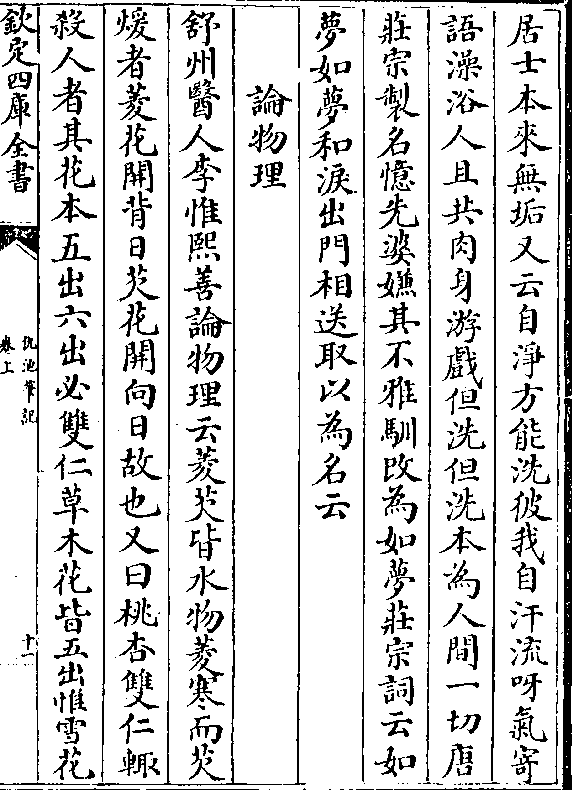 居士本來無垢又云自淨方能洗彼我自汗流呀氣寄
語澡浴人且共肉身游戲但洗但洗本為人間一切唐
莊宗製名憶先婆嫌其不雅馴改為如夢莊宗詞云如
夢如夢和淚出門相送取以為名云
論物理
舒州醫人李惟熙善論物理云菱芡皆水物菱寒而芡
煖者菱花開背日芡花開向日故也又曰桃杏雙仁輙
殺人者其花本五出六出必雙仁草木花皆五出惟雪花
欽定四庫全書
仇池筆記
卷上
十一